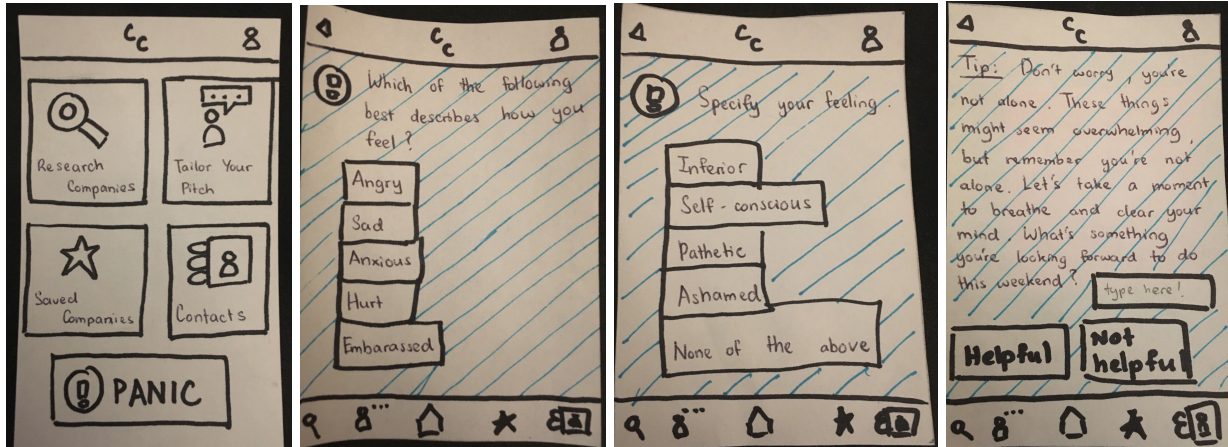 Cc
Research
Companies
Tailor Your
Pitch
Saved
Companies
Contacts
! PANIC
Cc
! Which of the following
best describes how you
feel?
Angry
Sad
Anxious
Hurt
Embarassed
Cc
! Specify your feeling.
Inferior
Self-conscious
Pathetic
Ashamed
None of the above
Cc
Tip: Don't worry, you're
not alone. These things
might seem overwhelming,
but remember you're not
alone. Let's take a moment
to breathe and clear your
mind. What's something
you're looking forward to do
this weekend?
type here!
Helpful
Not
helpful